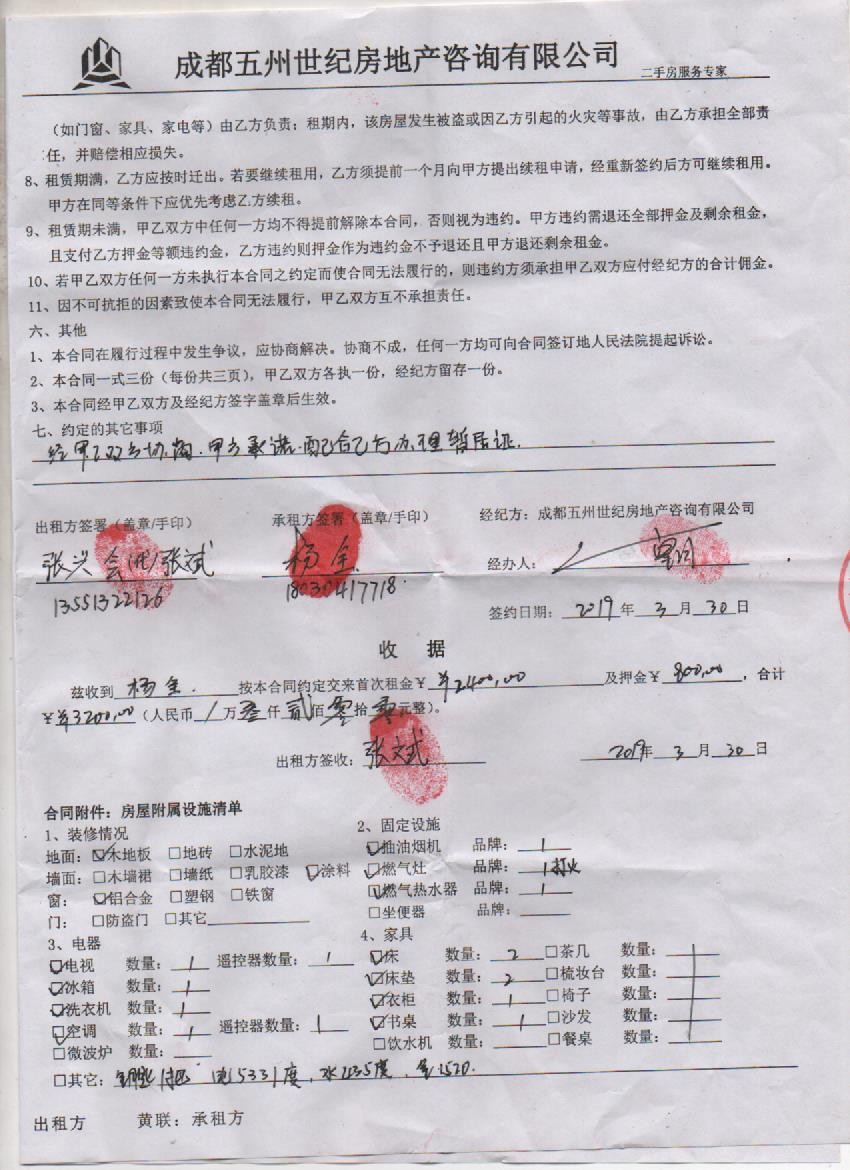 成都五州世纪房地产咨询有限公司 二手房服务专家
（如门窗、家具、家电等）由乙方负责；租期内，该房屋发生被盗或因乙方引起的火灾等事故，由乙方承担全部责
任，并赔偿相应损失。
8、租赁期满，乙方应按时迁出。若要继续租用，乙方须提前一个月向甲方提出续租申请，经重新签约后方可继续租用。
甲方在同等条件下应优先考虑乙方续租。
9、租赁期未满，甲乙双方中任何一方均不得提前解除本合同，否则视为违约。甲方违约需退还全部押金及剩余租金，
且支付乙方押金等额违约金，乙方违约则押金作为违约金不予退还且甲方退还剩余租金。
10、若甲乙双方任何一方未执行本合同之约定而使合同无法履行的，则违约方须承担甲乙双方应付经纪方的合计佣金。
11、因不可抗拒的因素致使本合同无法履行，甲乙双方互不承担责任。
六、其他
1、本合同在履行过程中发生争议，应协商解决。协商不成，任何一方均可向合同签订地人民法院提起诉讼。
2、本合同一式三份（每份共三页），甲乙双方各执一份，经纪方留存一份。
3、本合同经甲乙双方及经纪方签字盖章后生效。
七、约定的其它事项
经甲乙双方协商.甲方承诺.配合乙方办理暂居证.
出租方签署（盖章/手印） 承租方签署（盖章/手印） 经纪方：成都五州世纪房地产咨询有限公司
张兴会(代)张斌 杨全 经办人：
13551322126 18030417718
签约日期：2019年3月30日
收 据
兹收到 杨全. 按本合同约定交来首次租金￥ ￥2400.00 及押金￥ 800.00，合计
￥￥3200.00（人民币/万叁仟贰佰零拾零元整）。
出租方签收：张斌 2019年3月30日
合同附件：房屋附属设施清单
1、装修情况 2、固定设施
地面：☑木地板 □地砖 □水泥地 ☑抽油烟机 品牌：1
墙面：□木墙裙 □墙纸 □乳胶漆 ☑涂料 ☑燃气灶 品牌：1打火
窗：☑铝合金 □塑钢 □铁窗 ☑燃气热水器 品牌：1
门：□防盗门 □其它 □坐便器 品牌：
3、电器 4、家具
☑电视 数量：1 遥控器数量：1 ☑床 数量：2 □茶几 数量：
☑冰箱 数量：1 ☑床垫 数量：2 □梳妆台 数量：
☑洗衣机 数量：1 ☑衣柜 数量：1 □椅子 数量：
☑空调 数量：1 遥控器数量：1 ☑书桌 数量：1 □沙发 数量：
□微波炉 数量： □饮水机 数量： □餐桌 数量：
□其它：钥匙1把 电5331度，水235度，
出租方 黄联：承租方